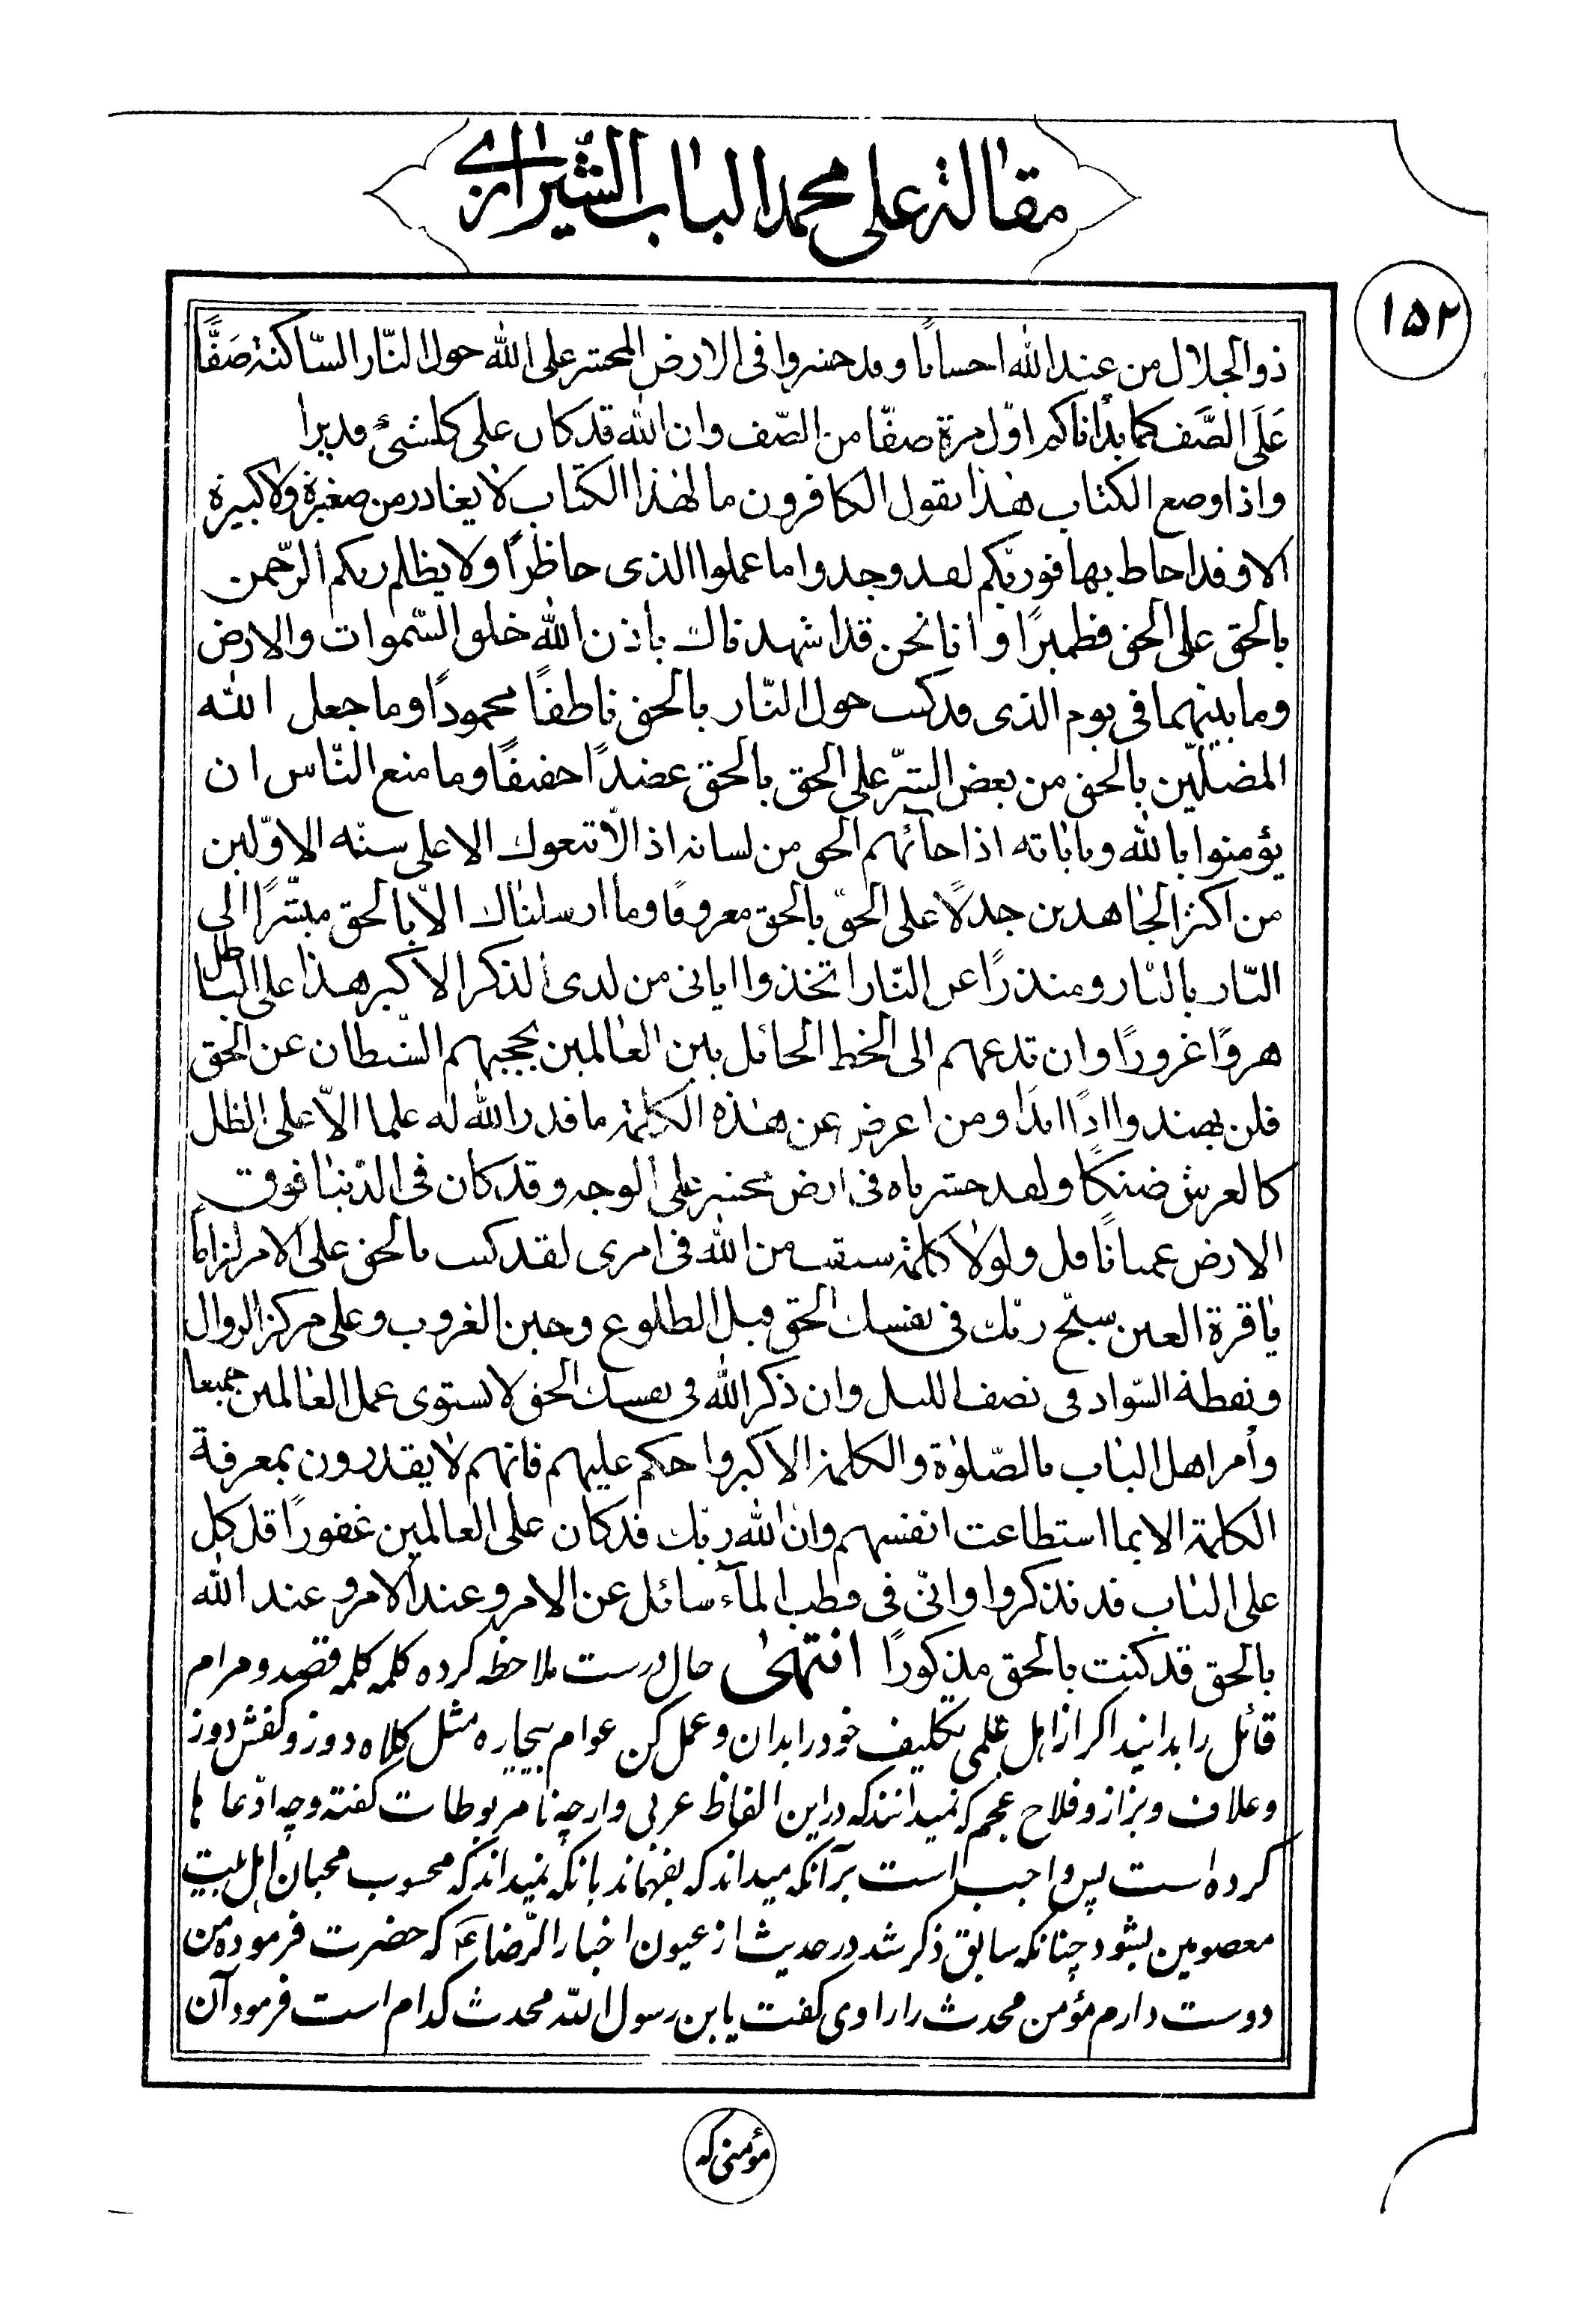 مقالة على محمد الباب الشيرازى
١٥٢
ذو الجلال من عند الله احسانا وقد حشروا فى الارض المحشر على الله حول النّار السّاكنة صَفًّا
عَلَى الصَّف كما بدأناكم اوّل مرة صفّا من الصّف وان الله قد كان على كلشئ قديرا
واذا وضع الكتاب هذا يقول الكافرون ما لهذا الكتاب لا يغادر من صغيرة ولا كبيرة
الا وقد احاط بها فوربّكم لقد وجدوا ما عملوا الذى حاظرًا ولا يظلم ربكم الرّحمن
بالحق على الحق قطميرًا وانا نحن قد اشهدناك باذن الله خلق السّموات والارض
وما بينهما فى يوم الذى قد كنت حول النّار بالحق ناطقًا محمودًا وما جعل الله
المضلّين بالحق من بعض السّر على الحق بالحق عضدًا حفيفًا وما منع النّاس ان
يؤمنوا بالله وباياته اذا جائهم الحق من لسانه اذ لا تتبعوك الا على سنّه الاوّلين
من اكثر الجاهدين جدلًا على الحقّ بالحق معروفا وما ارسلناك الاّ بالحق مبشّرًا الى
النّار بالنّار ومنذرًا عن النّار اتخذوا اياتى من لدى الذكر الاكبر هذا على الباطل
هروًا غرورًا وان تدعهم الى الخط الحائل بين العالمين يحجبهم الشيطان عن الحق
فلن يهتدوا ادًا ابدًا ومن اعرض عن هذه الكلمة ما قدر الله له علما الاّ على الظل
كالعرش ضنكًا ولقد حشرناه فى ارض محشر على الوجه وقد كان فى الدّنيا فوق
الارض عميانًا قل ولولا كلمة سبقت من الله فى امرى لقد كنت بالحق على الامر لزاما
يا قرة العين سبّح ربّك فى نفسك الحق قبل الطلوع وحين الغروب وعلى مركز الزوال
ونقطة السّواد فى نصف الليل وان ذكر الله فى نفسك الحق لا تستوى عمل العالمين جميعا
وأمر اهل الباب بالصّلوة والكلمة الاكبر واحكم عليهم فانهم لا يقدرون بمعرفة
الكلمة الا بما استطاعت انفسهم وان الله ربّك قد كان على العالمين غفورًا قل كل
على الباب قد تذكروا وانّى فى قطب المآء سائل عن الامر وعند الامر وعند الله
بالحق قد كنت بالحق مذكورًا انتهىٰ حال درست ملاحظه كرده كلمه كلمه قصد ومرام
قائل را بدانيد اكر از اهل علمى تكليف خود را بدان وعمل كن عوام بيچاره مثل كلاه دوز وكفش دوز
وعلاف وبزاز وفلاح عجم كه نميدانند كه در اين الفاظ عربى وار چه نامربوطات كفته وچه ادّعا ها
كرده است پس واجب است بر آنكه ميداند كه بفهماند بانكه نميداند كه محسوب محبان اهل بيت
معصومين بشود چنانكه سابق ذكر شد در حديث از عيون اخبار الرّضا ع كه حضرت فرموده من
دوست دارم مؤمن محدث را راوى كفت يا بن رسول الله محدث كدام است فرمود آن
مؤمنى كه